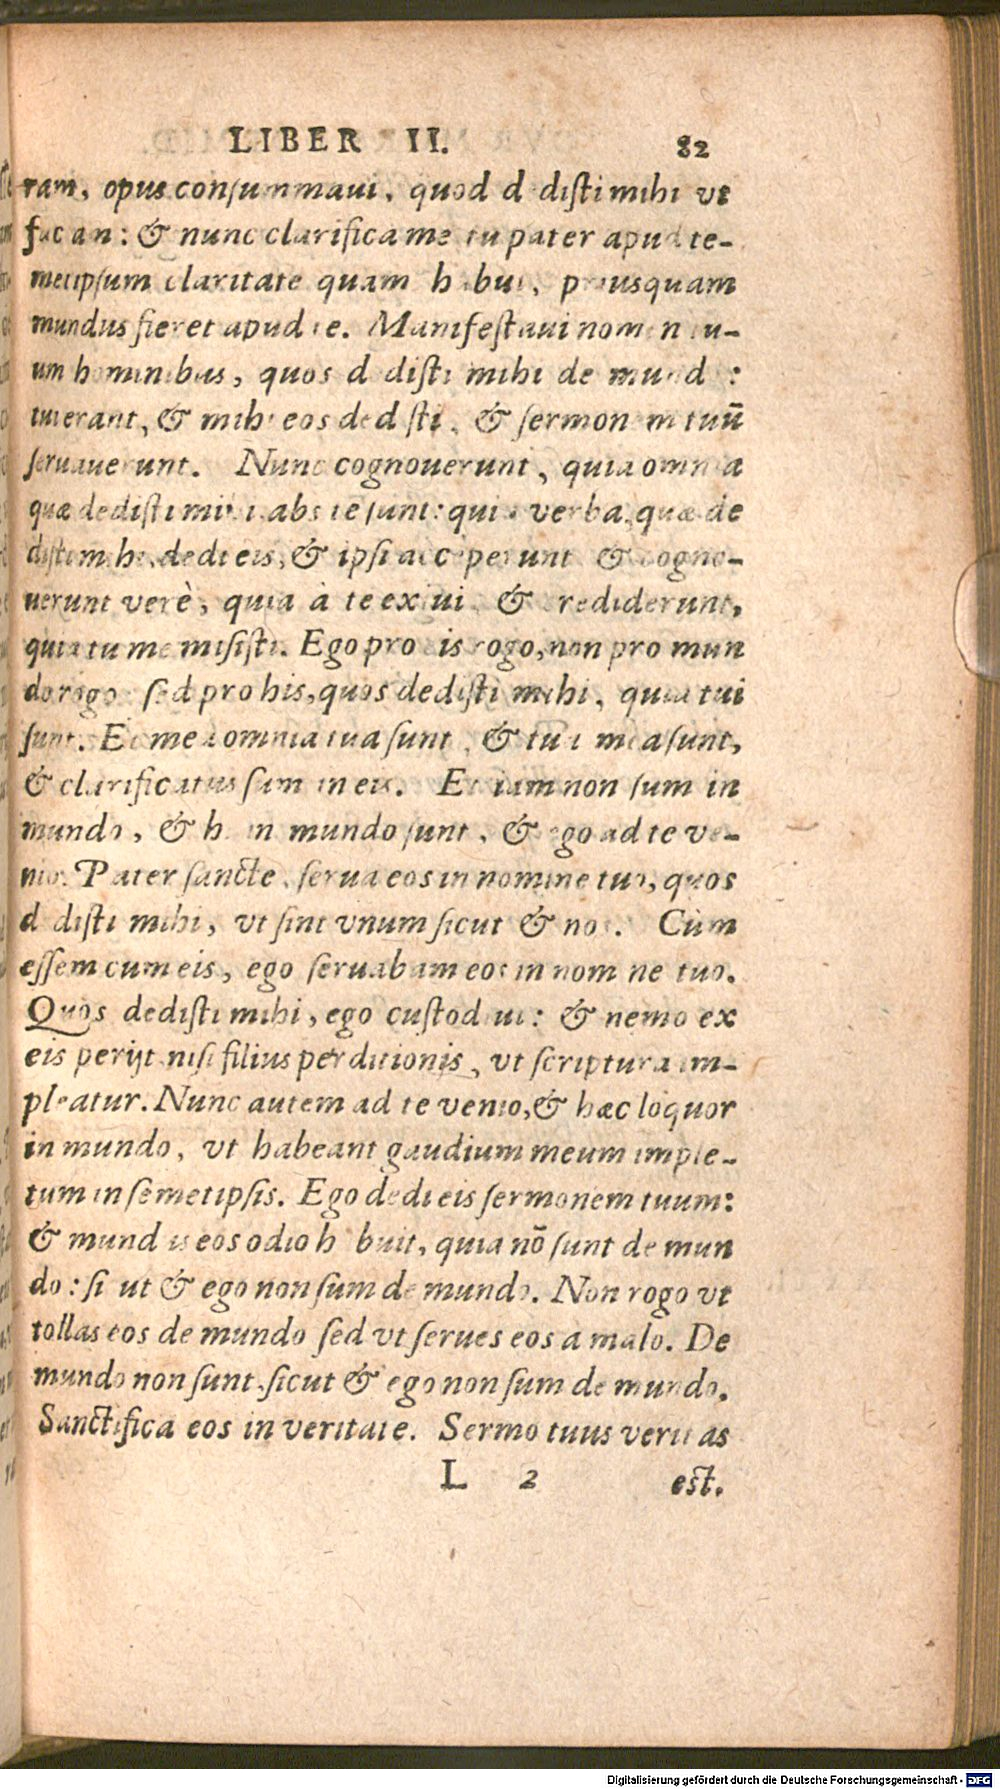 LIBER II. 82
ram, opus consummaui, quod dedisti mihi vt
faciam: & nunc clarifica me tu pater apud te-
metipsum claritate quam habui, priusquam
mundus fieret apud te. Manifestaui nomen tu-
um hominibus, quos dedisti mihi de mundo:
tui erant, & mihi eos dedisti, & sermonem tuū
seruauerunt. Nunc cognouerunt, quia omnia
quæ dedisti mihi abs te sunt: quia verba, quæ de
disti mihi, dedi eis, & ipsi acceperunt & cogno-
uerunt verè, quia à te exiui & crediderunt,
quia tu me misisti. Ego pro eis rogo, non pro mun
do rogo sed pro his, quos dedisti mihi, quia tui
sunt. Et mea omnia tua sunt, & tua mea sunt,
& clarificatus sum in eis. Et iam non sum in
mundo, & hi in mundo sunt, & ego ad te ve-
nio. Pater sancte, serua eos in nomine tuo, quos
dedisti mihi, vt sint vnum sicut & nos. Cùm
essem cum eis, ego seruabam eos in nomine tuo.
Quos dedisti mihi, ego custodiui: & nemo ex
eis perijt nisi filius perditionis, vt scriptura im-
pleatur. Nunc autem ad te venio, & hæc loquor
in mundo, vt habeant gaudium meum imple-
tum in semetipsis. Ego dedi eis sermonem tuum:
& mundus eos odio habuit, quia nō sunt de mun
do: sicut & ego non sum de mundo. Non rogo vt
tollas eos de mundo sed vt serues eos a malo. De
mundo non sunt, sicut & ego non sum de mundo.
Sanctifica eos in veritate. Sermo tuus veritas
L 2 est.
Digitalisierung gefördert durch die Deutsche Forschungsgemeinschaft - DFG